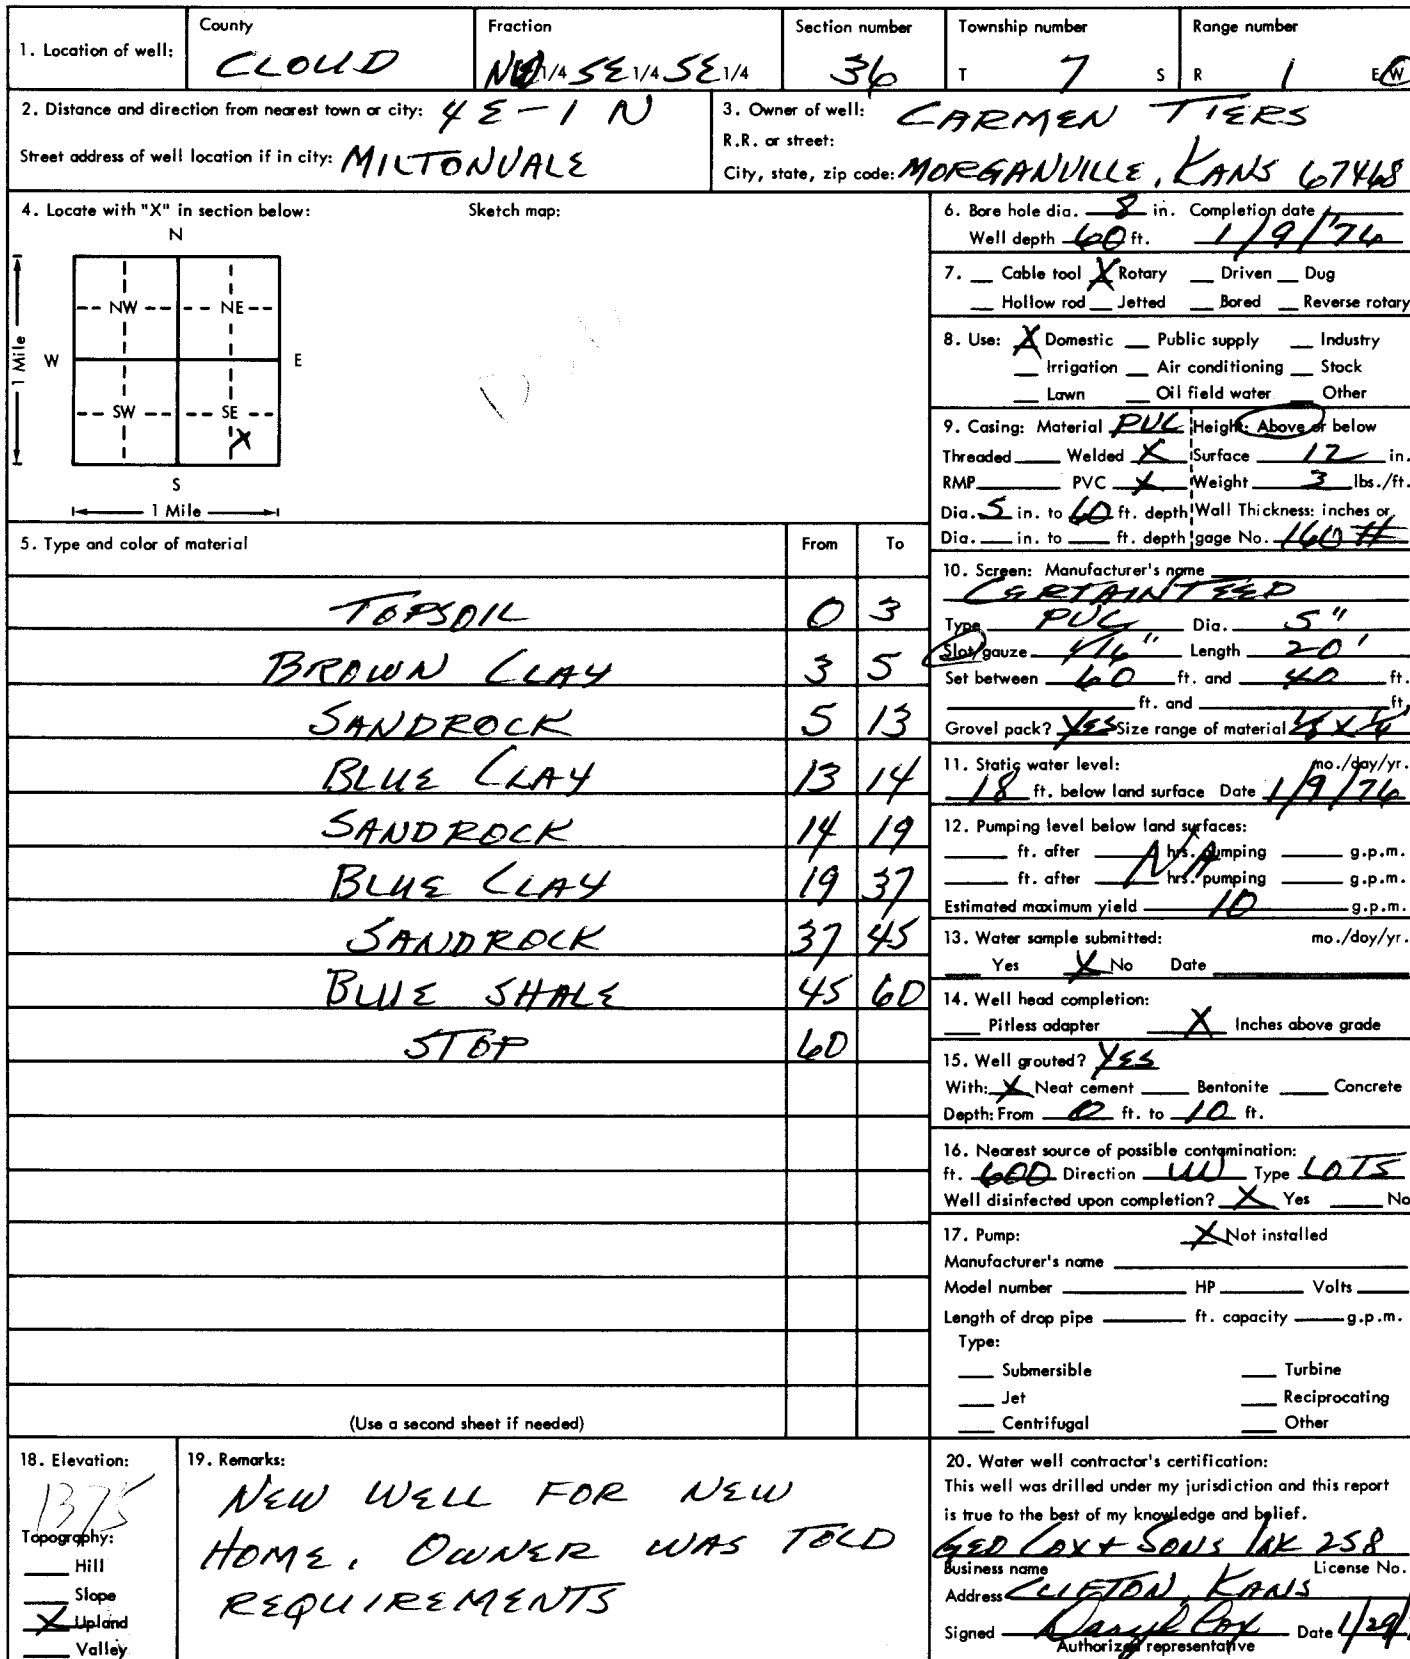 1. Location of well: County CLOUD Fraction 1/4 SE 1/4 SE 1/4 Section number 36 Township number T 7 S Range number R 1 E W
2. Distance and direction from nearest town or city: 4 E - 1 N
Street address of well location if in city: MILTONVALE
3. Owner of well: CARMEN TIERS
R.R. or street:
City, state, zip code: MORGANVILLE, KANS 67468
4. Locate with "X" in section below: Sketch map:
N
NW NE
W E
SW SE
X
S
1 Mile
1 Mile
5. Type and color of material From To
TOPSOIL 0 3
BROWN CLAY 3 5
SANDROCK 5 13
BLUE CLAY 13 14
SANDROCK 14 19
BLUE CLAY 19 37
SANDROCK 37 45
BLUE SHALE 45 60
STOP 60
(Use a second sheet if needed)
6. Bore hole dia. 8 in. Completion date
Well depth 60 ft. 1/9/76
7. Cable tool X Rotary Driven Dug
Hollow rod Jetted Bored Reverse rotary
8. Use: X Domestic Public supply Industry
Irrigation Air conditioning Stock
Lawn Oil field water Other
9. Casing: Material PVC Height: Above or below
Threaded Welded X Surface 12 in.
RMP PVC X Weight 3 lbs./ft.
Dia. 5 in. to 60 ft. depth Wall Thickness: inches or
Dia. in. to ft. depth gage No. 160 #
10. Screen: Manufacturer's name
CERTAINTEED
Type PVC Dia. 5"
Slot/gauze 1/16" Length 20'
Set between 60 ft. and 40 ft.
ft. and ft.
Gravel pack? YES Size range of material 1/8 X 1/4
11. Static water level: mo./day/yr.
18 ft. below land surface Date 1/9/76
12. Pumping level below land surfaces:
ft. after hrs. pumping g.p.m.
N/A
ft. after hrs. pumping g.p.m.
Estimated maximum yield 10 g.p.m.
13. Water sample submitted: mo./day/yr.
Yes X No Date
14. Well head completion:
Pitless adapter X Inches above grade
15. Well grouted? YES
With: X Neat cement Bentonite Concrete
Depth: From 0 ft. to 10 ft.
16. Nearest source of possible contamination:
ft. 600 Direction W Type LOTS
Well disinfected upon completion? X Yes No
17. Pump: X Not installed
Manufacturer's name
Model number HP Volts
Length of drop pipe ft. capacity g.p.m.
Type:
Submersible Turbine
Jet Reciprocating
Centrifugal Other
18. Elevation:
1375
Topography:
Hill
Slope
X Upland
Valley
19. Remarks:
NEW WELL FOR NEW
HOME. OWNER WAS TOLD
REQUIREMENTS
20. Water well contractor's certification:
This well was drilled under my jurisdiction and this report
is true to the best of my knowledge and belief.
GEO COX + SONS INC 258
Business name License No.
Address CLIFTON, KANS
Signed Daryl Cox Date 1/29/
Authorized representative